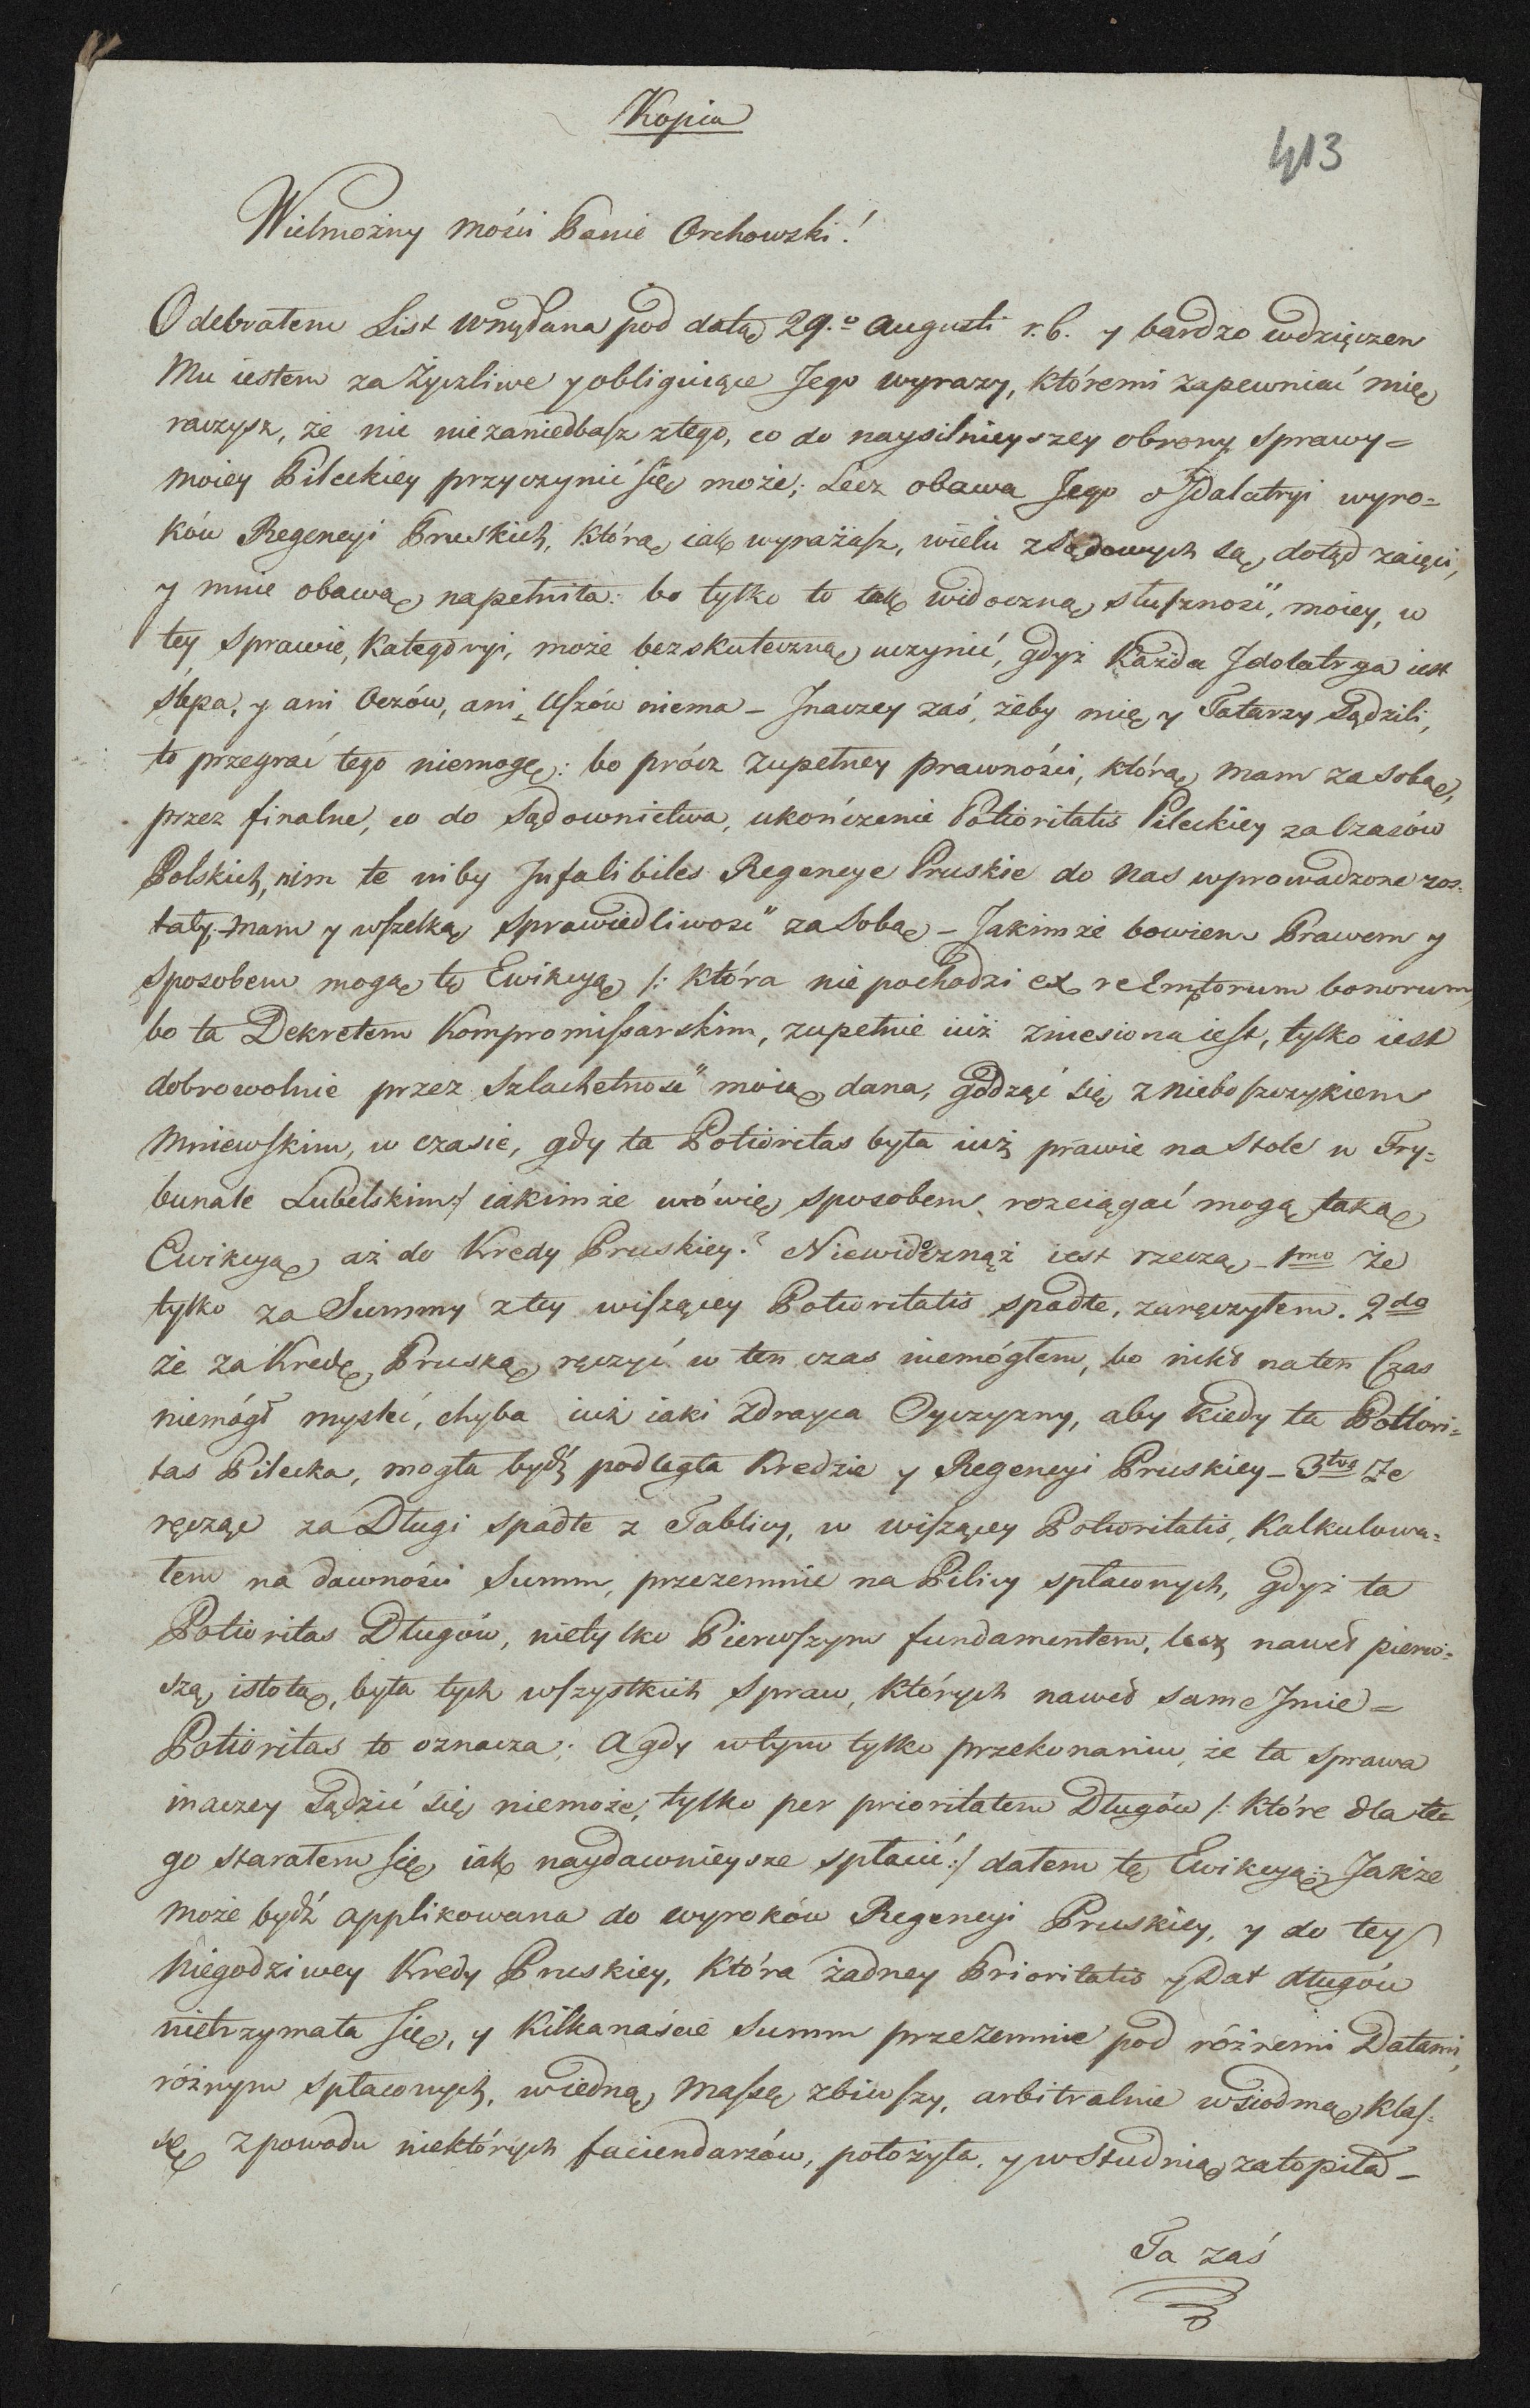 Kopia
413
Wielmożny Mości Panie Orchowski!
Odebrałem List WMPana pod datą 29.º Augusti r. b. y bardzo wdzięczen
Mu iestem za Życzliwe y obliguiące Jego wyrazy, któremi zapewniać mię
raczysz, że nic niezaniedbasz z tego, co do naysilnieyszey obrony sprawy=
moiey Pileckiey przyczynić się może; Lecz obawa Jego o Jdalatryi wyro=
ków Regencyi Pruskich, którą iak wyrażasz, wielu z Sądowych są dotąd zaięci,
y mnie obawą napełniła: bo tylko to tak widoczną słuszność, moiey, w
tey sprawie, kategoryi, może bezskuteczną uczynić, gdyż każda Jdolatrya iest
ślepa, y ani Oczów, ani Uszów niema – Jnaczey zaś, żeby mię y Tatarzy Sądzili,
to przegrać tego niemogę: bo prócz zupełney prawności, którą mam za sobą,
przez finalne, co do Sądownictwa, ukończenie Potioritatis Pileckiey za Czasów
Polskich, nim te niby Jnfalibiles Regencye Pruskie do nas wprowadzone zos=
tały; mam y wszelką sprawiedliwość za Sobą – Jakimże bowiem Prawem y
sposobem mogą tę Ewikcyą /: która nie pochodzi ex re Emptorum bonorum
bo ta Dekretem Kompromissarskim, zupełnie iuż zniesiona iest, tylko iest
dobrowolnie przez Szlachetność moią dana, godząc się z nieboszczykiem
Mniewskim, w czasie, gdy ta Potioritas była iuż prawie na Stole w Try=
bunale Lubelskim:/ iakimże mówię sposobem rozciągać mogą taką
Ewikcyą aż do Kredy Pruskiey? Niewidocznąż iest rzeczą – 1mo że
tylko za Summy z tey wiszącey Potioritatis spadłe, zaręczyłem. 2do
że za Kredę Pruską ręczyć w ten czas niemógłem, bo nikt na ten Czas
niemógł myśleć, chyba iuż iaki Zdrayca Oyczyzny, aby kiedy ta Potiori=
tas Pilecka, mogła bydź podległa Kredzie y Regencyi Pruskiey – 3tio Że
ręcząc za Długi spadłe z Tablicy, w wiszącey Potioritatis, kalkulowa=
łem na dawności Summ, przezemnie na Pilicy spłaconych, gdyż ta
Potioritas Długów, nietylko Pierwszym fundamentem, lecz nawet pierw=
szą istotą, była tych wszystkich spraw, których nawed same Jmie=
Potioritas to oznacza; A gdy w tym tylko przekonaniu, że ta sprawa
inaczey Sądzić się niemoże, tylko per prioritatem Długów /: które dla te=
go starałem się iak naydawnieysze spłacić:/ dałem tę Ewikcyą; Jakże
może bydź applikowana do wyroków Regencyi Pruskiey, y do tey
niegodziwey Kredy Pruskiey, która żadney Prioritatis y Dat długów
nietrzymała się, y kilkanaście Summ przezemnie pod różnemi Datami,
różnym spłaconych, w iedną massę zbiwszy, arbitralnie w siodmą klas=
sę z powodu niektórych faciendarzów, położyła, y w Studnią zatopiła –
Ta zaś